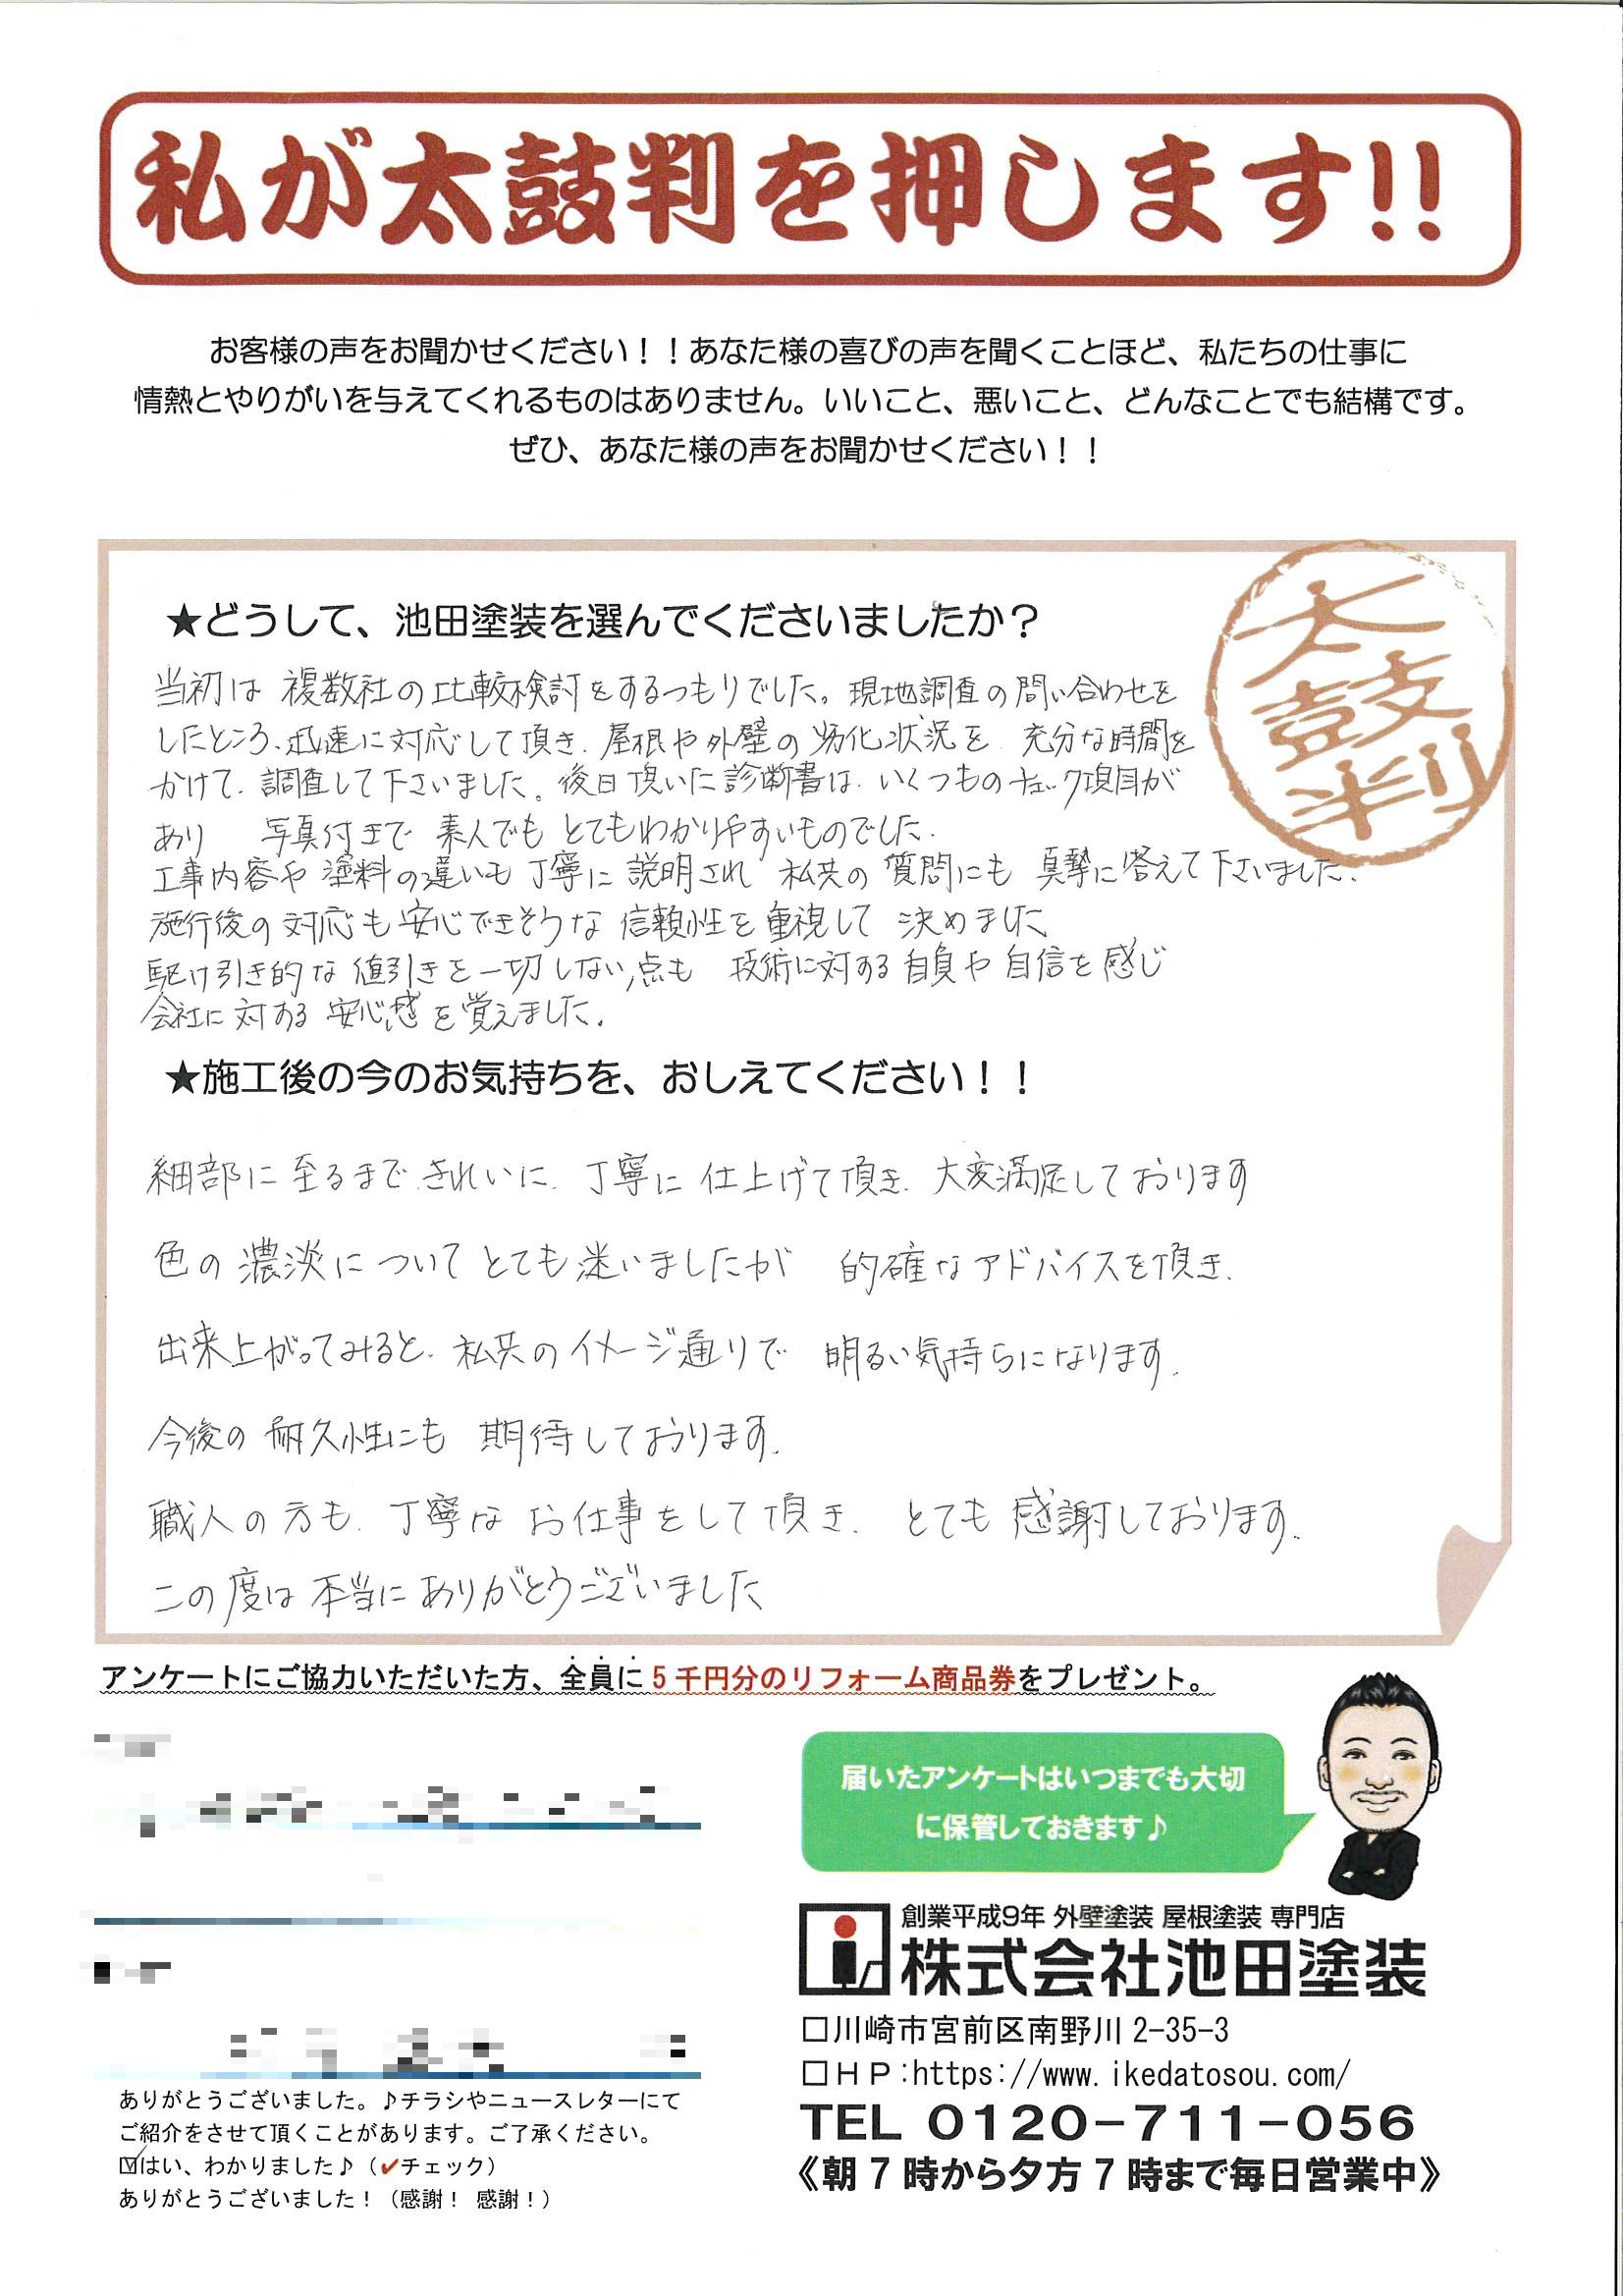 私が太鼓判を押します!!
お客様の声をお聞かせください！！あなた様の喜びの声を聞くことほど、私たちの仕事に
情熱とやりがいを与えてくれるものはありません。いいこと、悪いこと、どんなことでも結構です。
ぜひ、あなた様の声をお聞かせください！！
太鼓判
★どうして、池田塗装を選んでくださいましたか？
当初は 複数社の比較検討をするつもりでした。現地調査の問い合わせを
したところ、迅速に対応して頂き、屋根や外壁の劣化状況を 充分な時間を
かけて、調査して下さいました。後日頂いた診断書は、いくつものチェック項目が
あり 写真付きで 素人でも とてもわかりやすいものでした。
工事内容や塗料の違いも丁寧に説明され 私共の質問にも 真摯に答えて下さいました。
施行後の対応も安心できそうな信頼性を重視して 決めました
駆け引き的な値引きを一切しない点も 技術に対する自負や自信を感じ
会社に対する安心感を覚えました。
★施工後の今のお気持ちを、おしえてください！！
細部に至るまで、きれいに、丁寧に仕上げて頂き、大変満足しております
色の濃淡についてとても迷いましたが 的確なアドバイスを頂き、
出来上がってみると、私共のイメージ通りで 明るい気持ちになります。
今後の耐久性にも 期待しております。
職人の方も、丁寧なお仕事をして頂き、とても感謝しております。
この度は本当にありがとうございました
アンケートにご協力いただいた方、全員に5千円分のリフォーム商品券をプレゼント。
届いたアンケートはいつまでも大切
に保管しておきます♪
創業平成9年 外壁塗装 屋根塗装 専門店
株式会社池田塗装
□川崎市宮前区南野川2-35-3
□ＨＰ:https://www.ikedatosou.com/
TEL 0120-711-056
《朝7時から夕方7時まで毎日営業中》
ありがとうございました。♪チラシやニュースレターにて
ご紹介をさせて頂くことがあります。ご了承ください。
☑はい、わかりました♪（✓チェック）
ありがとうございました！（感謝！ 感謝！）